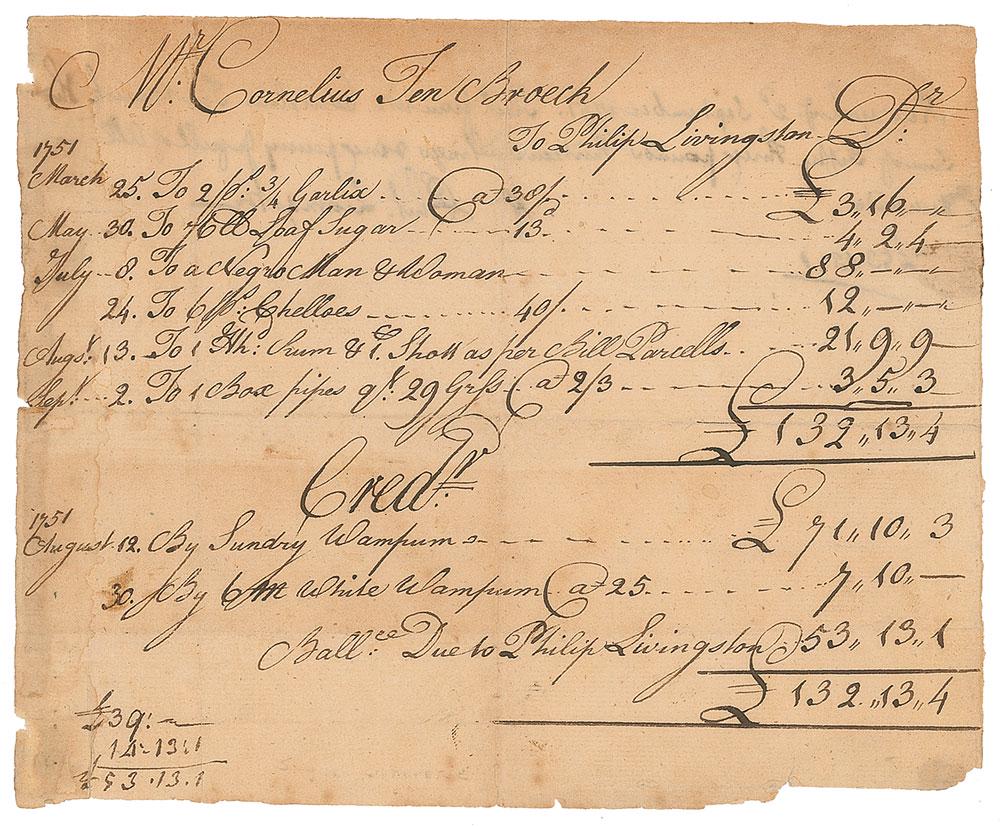 Mr. Cornelius Ten Broeck
To Philip Livingston Dr.
1751
March 25. To 2 ps. 3/4 Garlix @ 38/. £ 3,, 16,, —,,
May 30. To 76 lb Loaf Sugar 13d 4,, 2,, 4
July 8. To a Negro Man & Woman 88,, —,, —
24. To 6 ps. Chelloes 40/. 12,, —,, —
Augst. 13. To 1 Hhd. Rum & C. Shott as per Bill Parcells 21,, 9,, 9
Sept. 2. To 1 Box pipes qt. 29 Grss @ 2/3 3,, 5,, 3
£ 132,, 13,, 4
Credr.
1751
August 12. By Sundry Wampum £ 71,, 10,, 3
30. By 6 M White Wampum @ 25 7,, 10,, —
Ballce. Due to Philip Livingston 53,, 13,, 1
£ 132,, 13,, 4
£ 39: —
14. 13. 1
£ 53. 13. 1